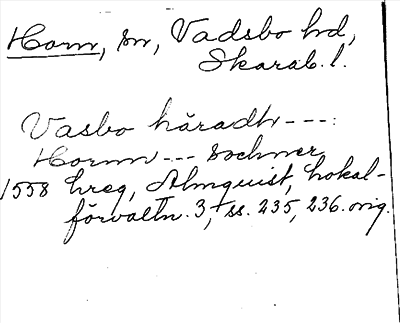 Horn, sn, Vadsbo hd,
Skarab. l.
Vasbo häradh ---:
Hornn --- sochner
1558 hreg, Almquist, Lokal-
förvaltn. 3, ss. 235, 236. orig.